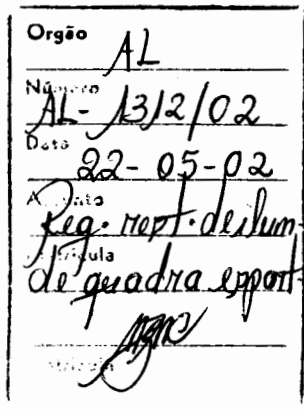 Orgão
AL
Número
AL- 1312/02
Data
22-05-02
Assunto
Req. rept. de ilum-
Matrícula
de quadra esport-